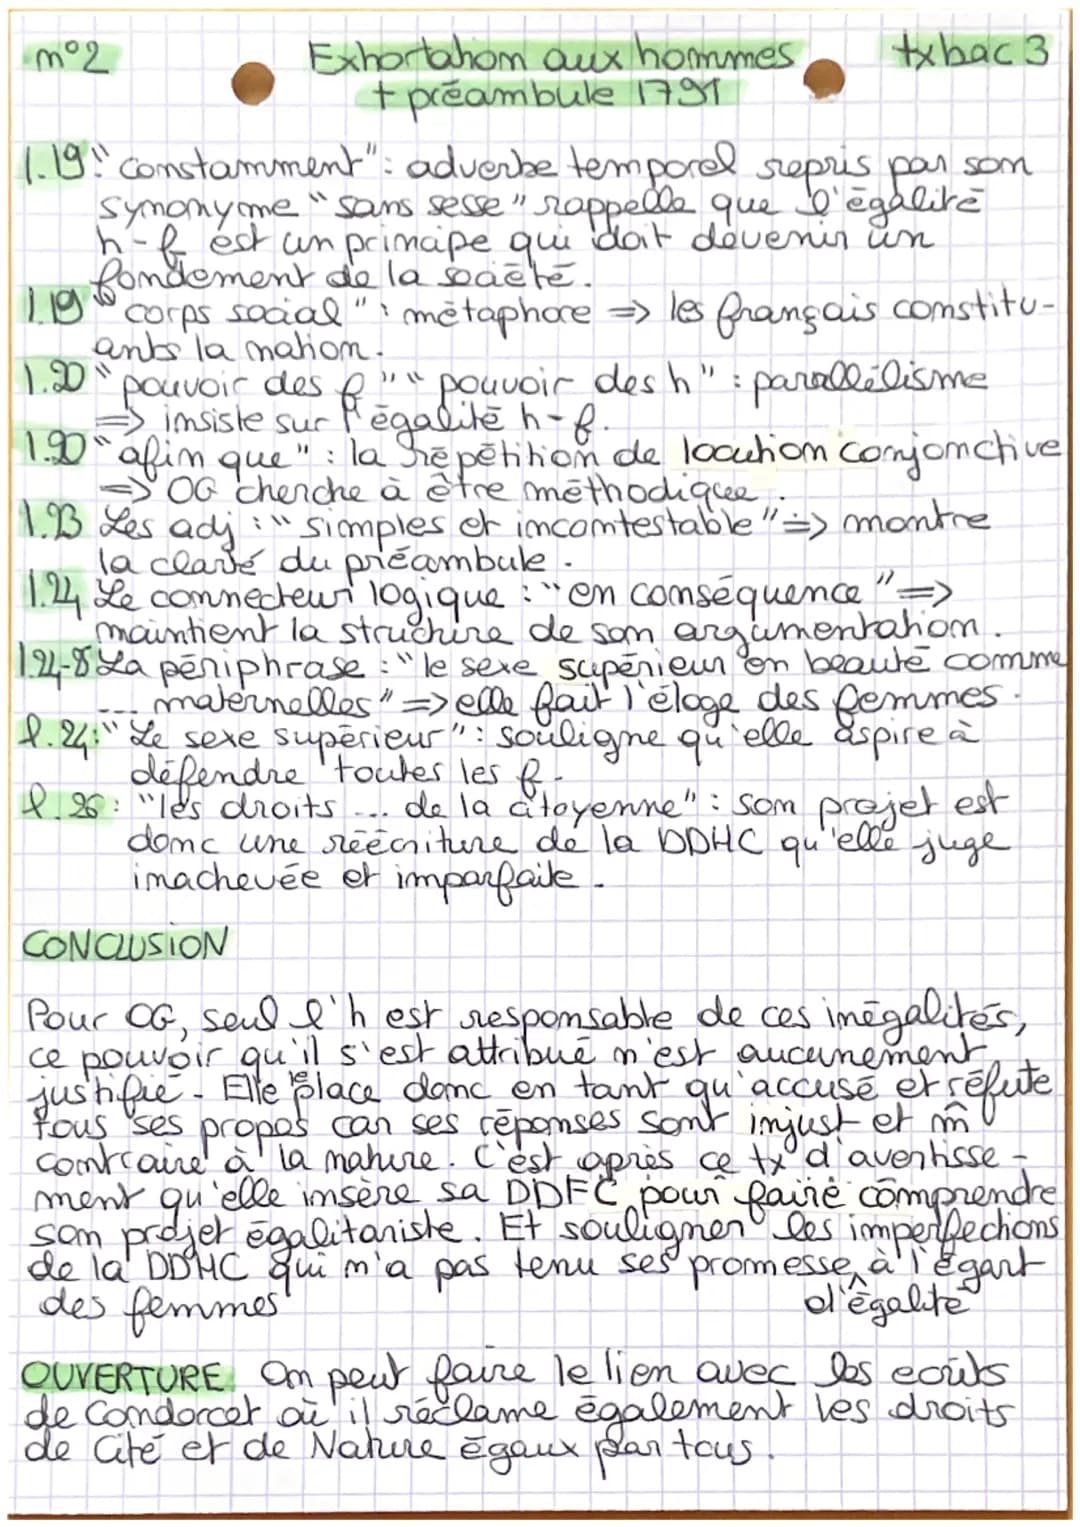 n°2
Exhortation aux hommes
+ préambule 1791
txbac 3
l.19 "constamment": adverbe temporel repris par son
synonyme "sans sesse" rappelle que l'égalité
h-f est un principe qui doit devenir un
fondement de la société.
l.19 "corps social": métaphore => les français constitu-
ants la nation.
l.20 "pouvoir des f" "pouvoir des h": parallélisme
=> insiste sur l'égalité h-f.
l.20 "afin que": la répétition de locution conjonctive
=> OG cherche à être méthodique.
l.23 Les adj: "simples et incontestable" => montre
la clarté du préambule.
l.24 Le connecteur logique: "en conséquence" =>
maintient la structure de son argumentation.
l.24-8 La périphrase: "le sexe supérieur en beauté comme
... maternelles" => elle fait l'éloge des femmes.
l.24: "Le sexe supérieur": souligne qu'elle aspire à
défendre toutes les f.
l.26: "les droits ... de la citoyenne": son projet est
donc une réécriture de la DDHC qu'elle juge
inachevée et imparfaite.
CONCLUSION
Pour OG, seul l'h est responsable de ces inégalités,
ce pouvoir qu'il s'est attribué n'est aucunement
justifié. Elle le place donc en tant qu'accusé et réfute
tous ses propos car ses réponses sont injust et m̂
contraire à la nature. C'est après ce tx d'avertisse-
ment qu'elle insère sa DDFC pour faire comprendre
son projet égalitariste. Et souligner les imperfections
de la DDHC qui n'a pas tenu ses promesse d'égalité à l'égart
des femmes
OUVERTURE On peut faire le lien avec les ecrits
de Condorcet où il réclame également les droits
de Cité et de Nature égaux par tous.